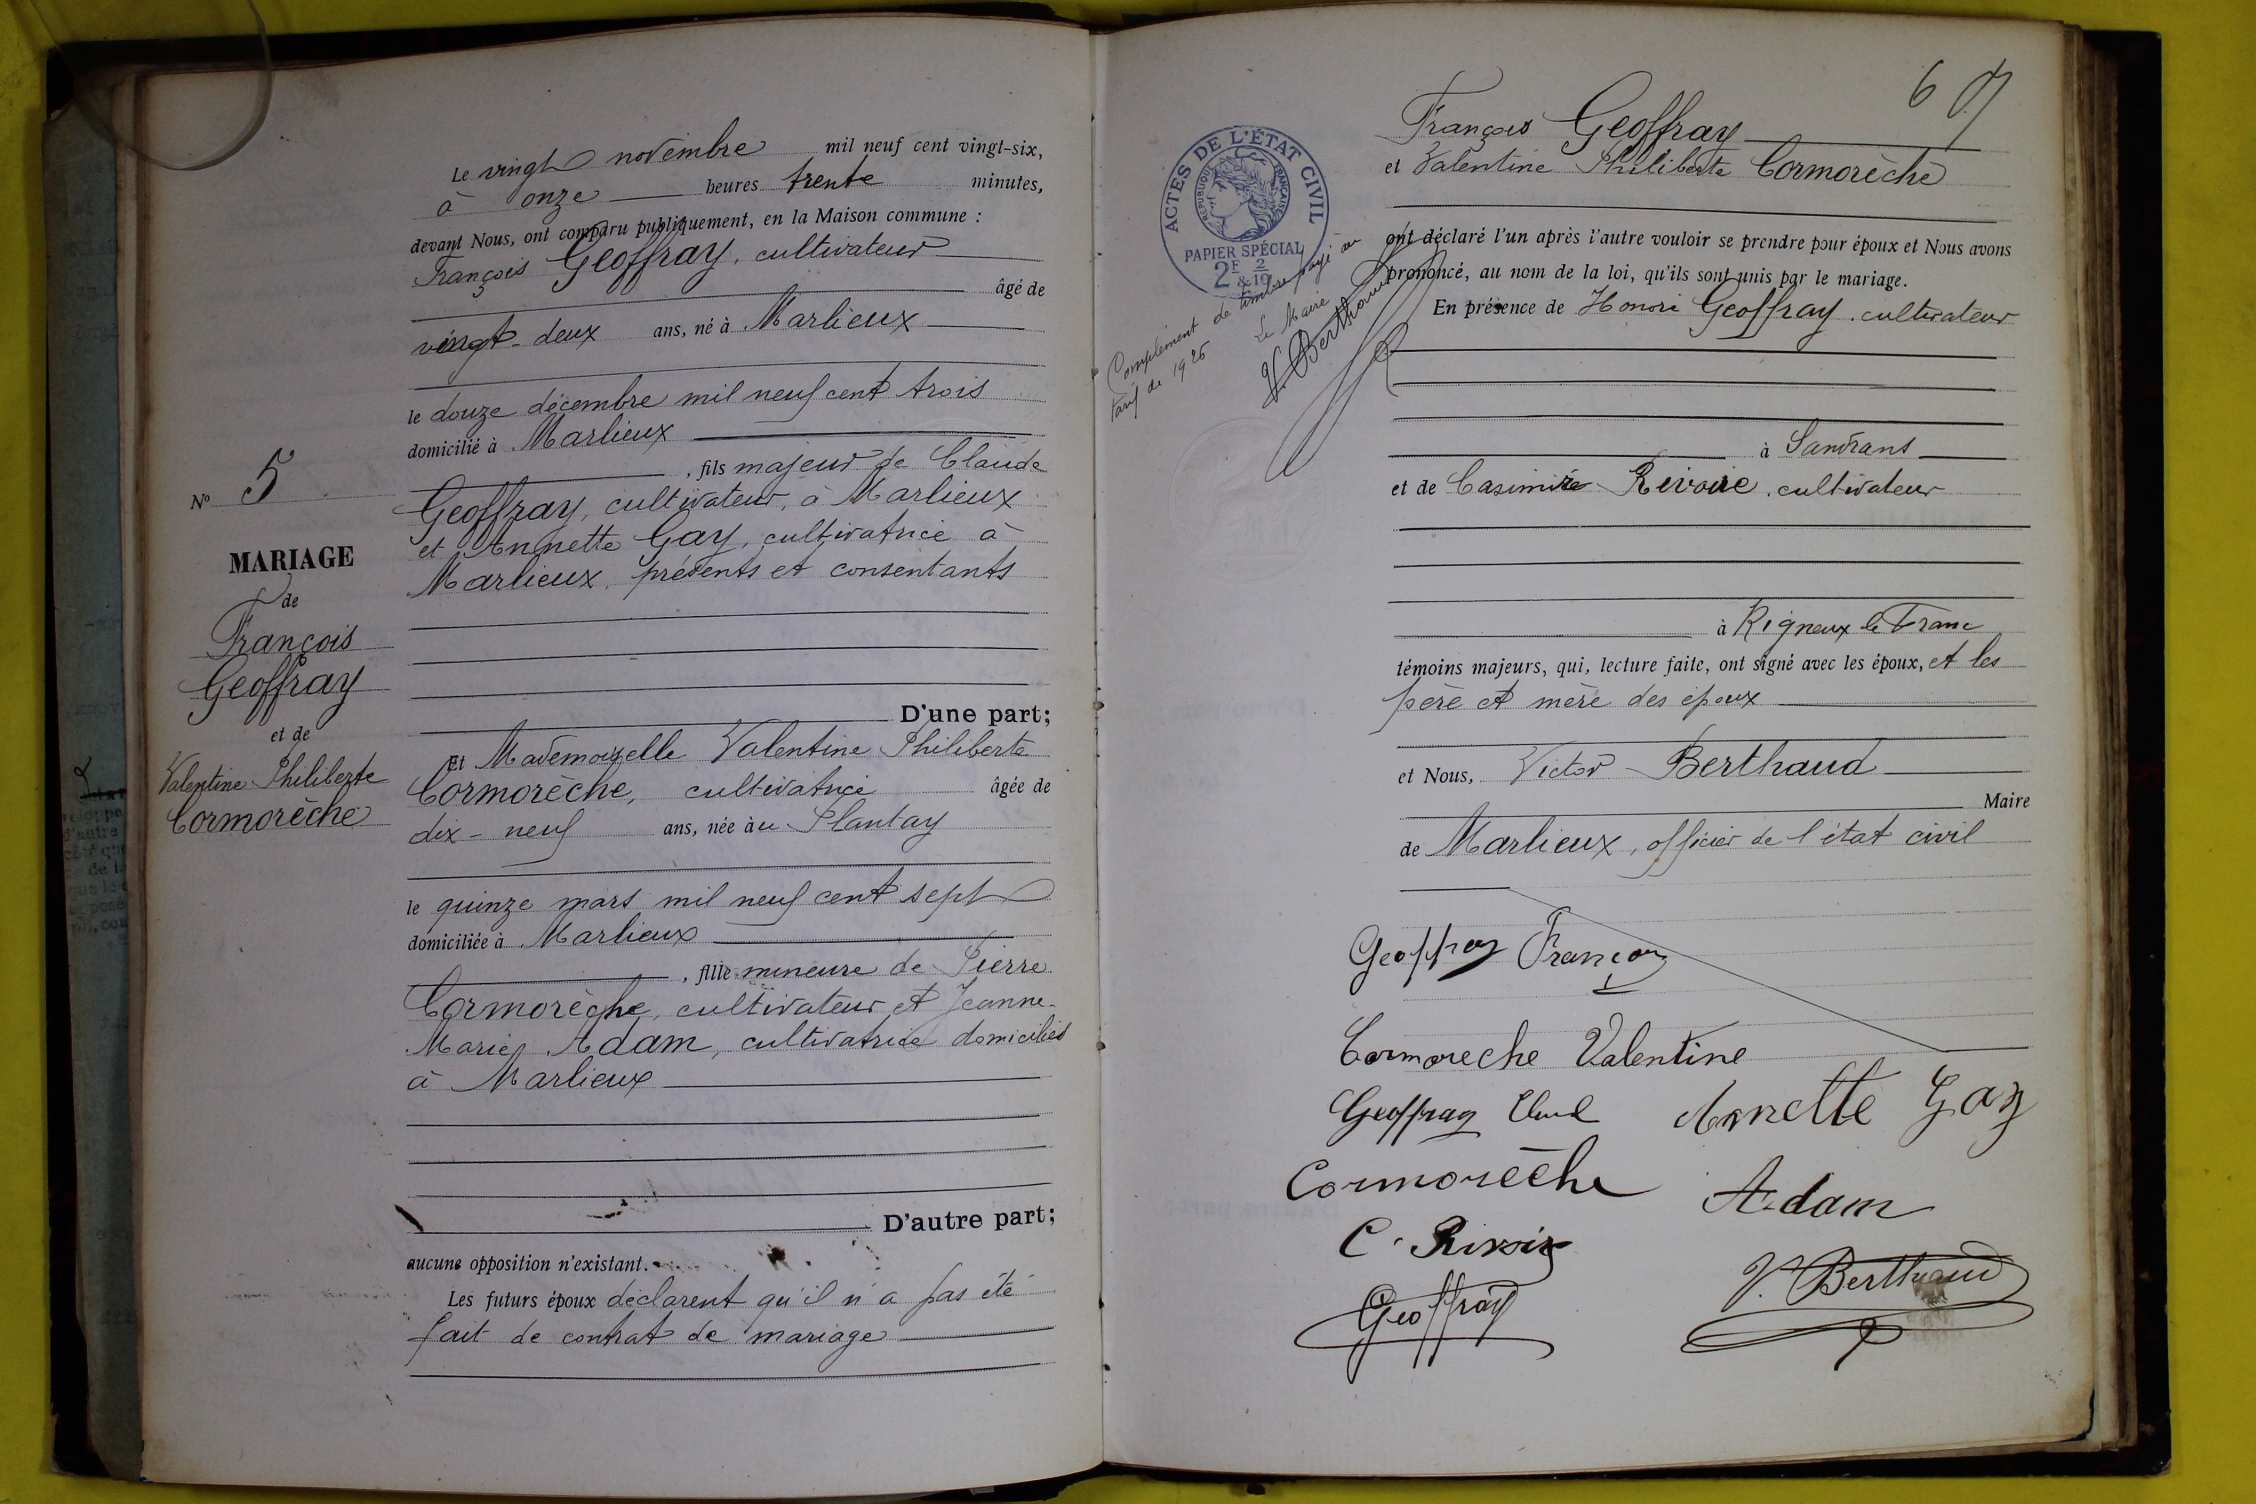 Le vingt novembre mil neuf cent vingt-six,
à onze heures trente minutes,
devant Nous, ont comparu publiquement, en la Maison commune :
François Geoffray, cultivateur
âgé de
vingt-deux ans, né à Marlieux
le douze décembre mil neuf cent trois
domicilié à Marlieux
, fils majeur de Claude
Geoffray, cultivateur, à Marlieux
et Annette Gay, cultivatrice à
Marlieux, présents et consentants
D'une part;
Et Mademoiselle Valentine Philiberte
Cormorèche, cultivatrice âgée de
dix-neuf ans, née au Plantay
le quinze mars mil neuf cent sept
domiciliée à Marlieux
, fille mineure de Pierre
Cormorèche, cultivateur et Jeanne-
Marie Adam, cultivatrice domiciliés
à Marlieux
D'autre part;
aucune opposition n'existant.
Les futurs époux déclarent qu'il n'a pas été
fait de contrat de mariage
No 5
MARIAGE
de
François
Geoffray
et de
Valentine Philiberte
Cormorèche
67
ACTES DE L'ÉTAT CIVIL
RÉPUBLIQUE FRANÇAISE
PAPIER SPÉCIAL
2F & 2/10
Complément de timbre payé au
tarif de 1926
Le Maire
V. Berthaud
François Geoffray
et Valentine Philiberte Cormorèche
ont déclaré l'un après l'autre vouloir se prendre pour époux et Nous avons
prononcé, au nom de la loi, qu'ils sont unis par le mariage.
En présence de Honoré Geoffray, cultivateur
à Sandrans
et de Casimire Rivoire, cultivateur
à Rigneux le Franc
témoins majeurs, qui, lecture faite, ont signé avec les époux, et les
père et mère des époux
et Nous, Victor Berthaud
Maire
de Marlieux, officier de l'état civil
Geoffray François
Cormoreche Valentine
Geoffray Annette Gay
Cormorèche Adam
C. Rivoire
V. Berthaud
Geoffray